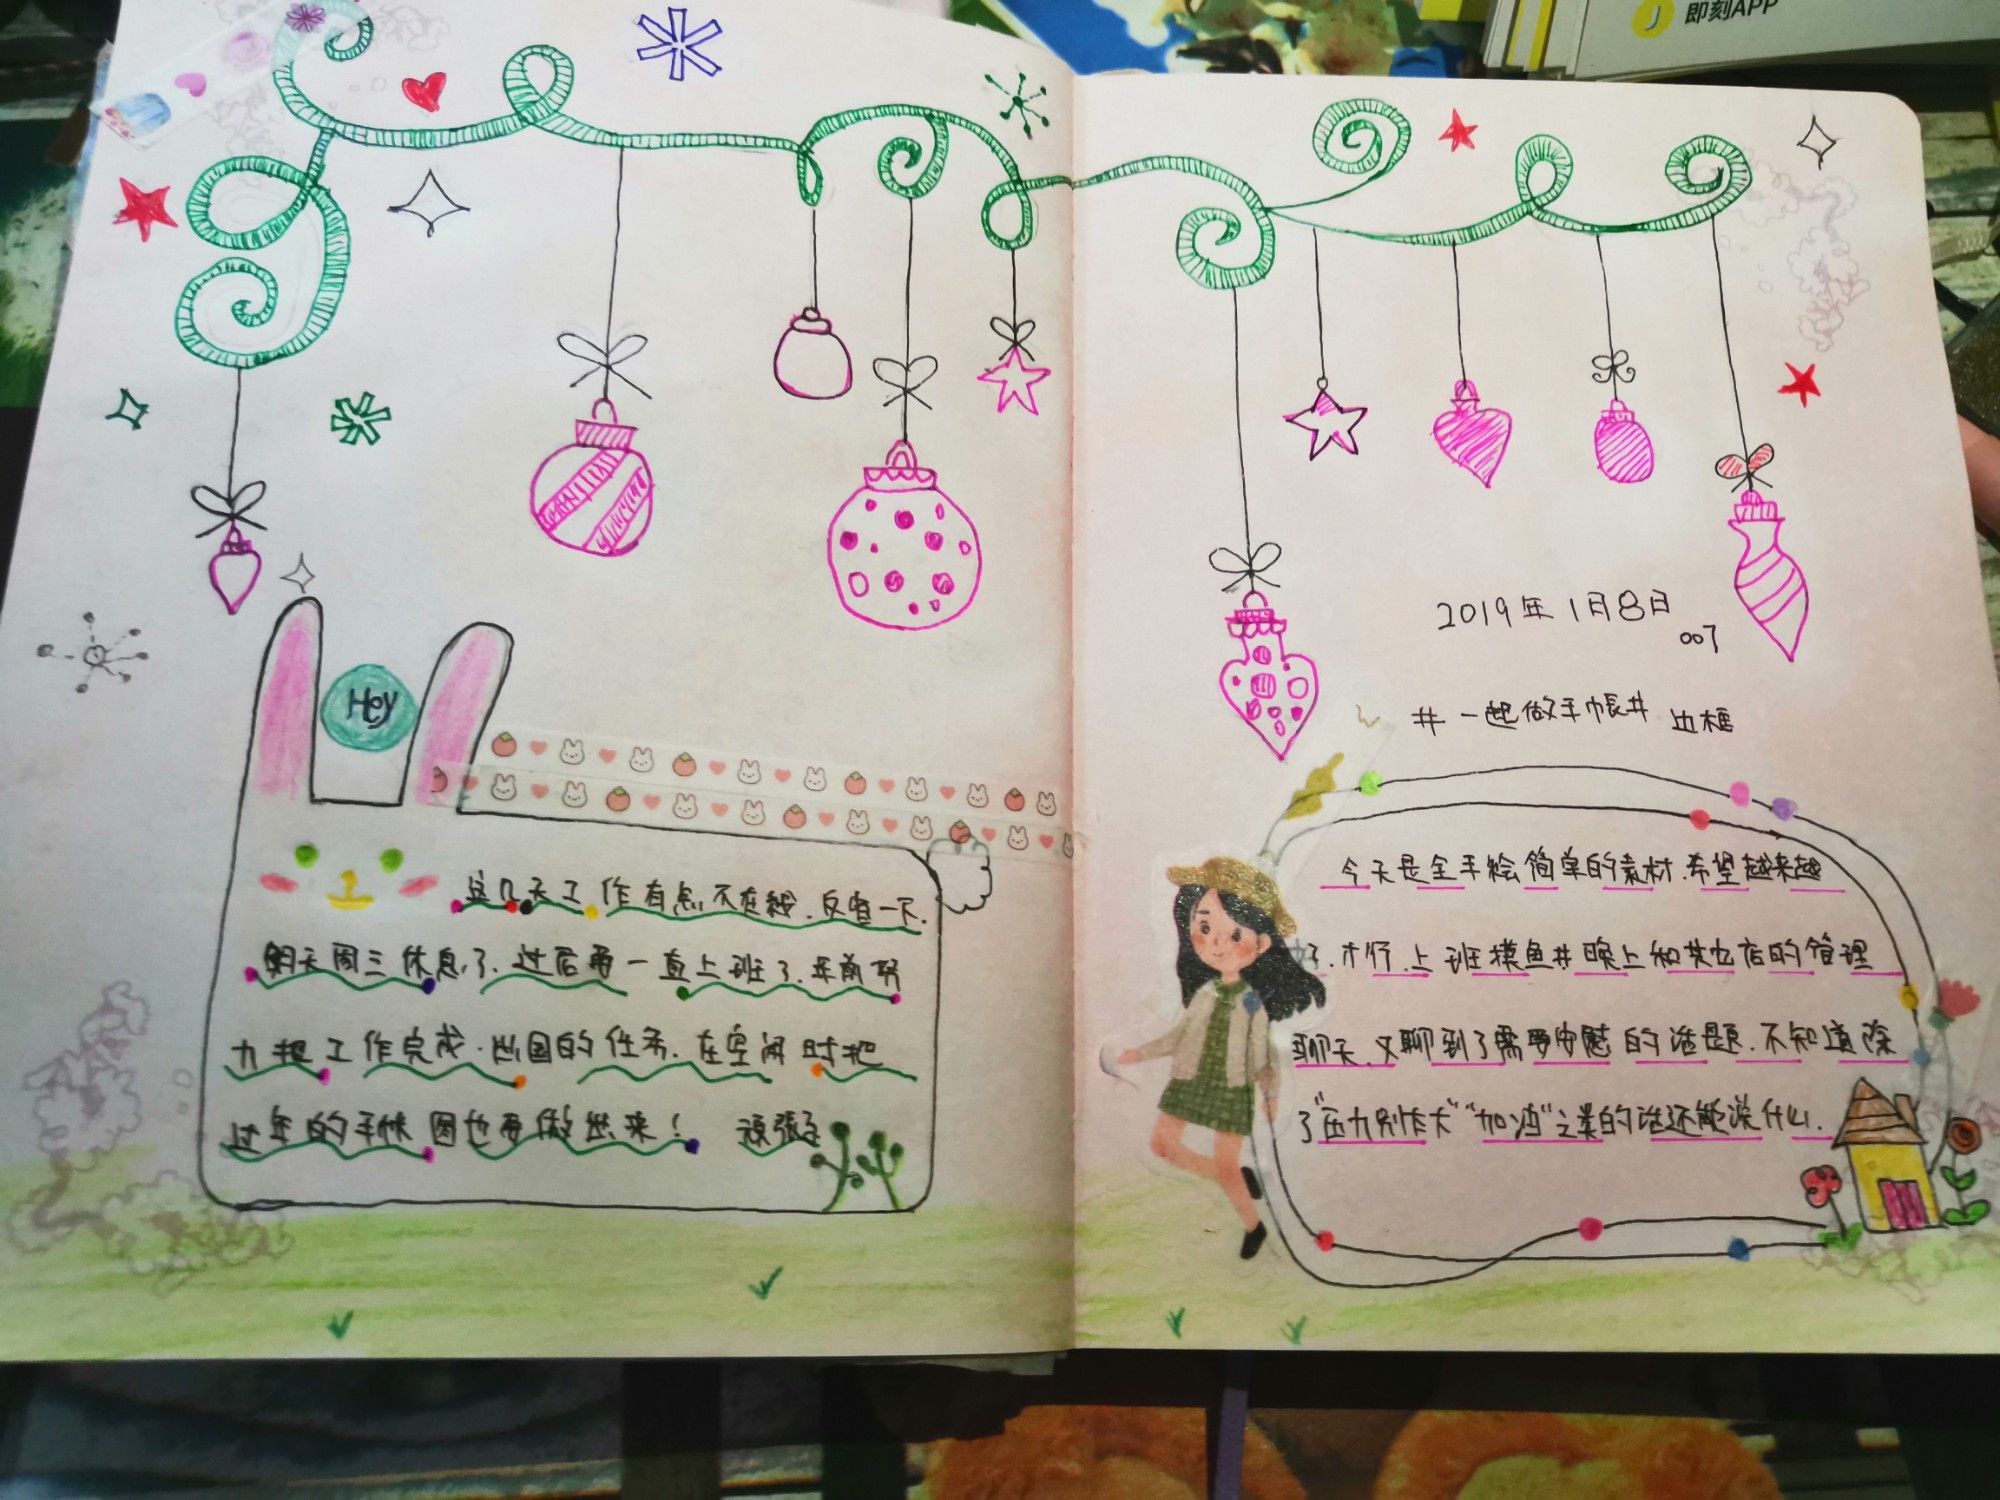 即刻APP
Hey
这几天工作有点不在线.反省一下.
明天周三休息了.过后要一直上班了.年前努
力把工作完成.出国的任务.在空闲时把
过年的手帐图也要做出来!
2019年1月8日
007
#一起做手帐# 边框
今天是全手绘简单的素材.希望越来越
好.才行.上班摸鱼#晚上和其他店的管理
聊天.又聊到了需要安慰的话题.不知道除
了"压力别太大""加油"之类的话还能说什么.